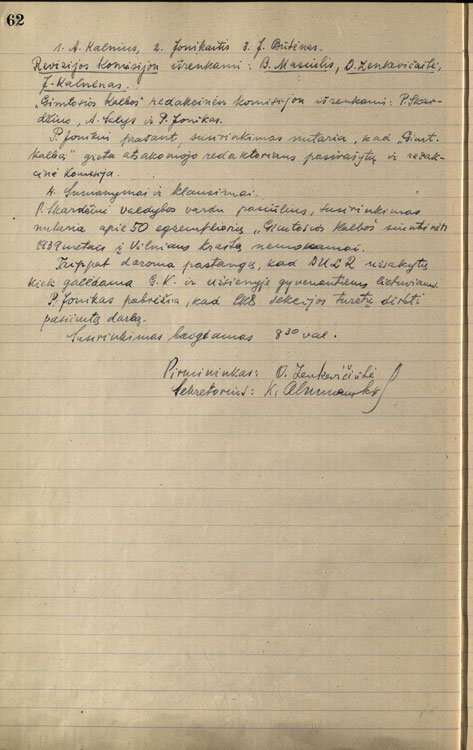 62
1. A. Kalnius, 2. Jonikaitis 3. J. Būtėnas.
Revizijos Komisijon išrenkami: B. Masiulis, O. Zenkevičaitė,
J. Kalvėnas.
„Gimtosios Kalbos" redakcinėn komisijon išrenkami: P. Skar-
džius, A. Salys ir P. Jonikas.
P. Jonikui prašant, susirinkimas nutaria, kad „Gimt.
Kalbą" greta atsakomojo redaktoriaus pasirašytų ir redak-
cinė komisija.
4. Sumanymai ir klausimai.
P. Skardžiui valdybos vardu pasiūlius, susirinkimas
nutaria apie 50 egzempliorių „Gimtosios Kalbos" siuntinėti
1939 metais į Vilniaus kraštą nemokamai.
Taip pat daroma pastanga, kad DULR užsakytų
kiek galėdama G. K. ir užsienyje gyvenantiems lietuviams.
P. Jonikas pabrėžia, kad LKD sekcijos turėtų dirbti
pasiimtą darbą.
Susirinkimas baigiamas 8³⁰ val.
Pirmininkas: O. Zenkevičiūtė
Sekretorius: K.